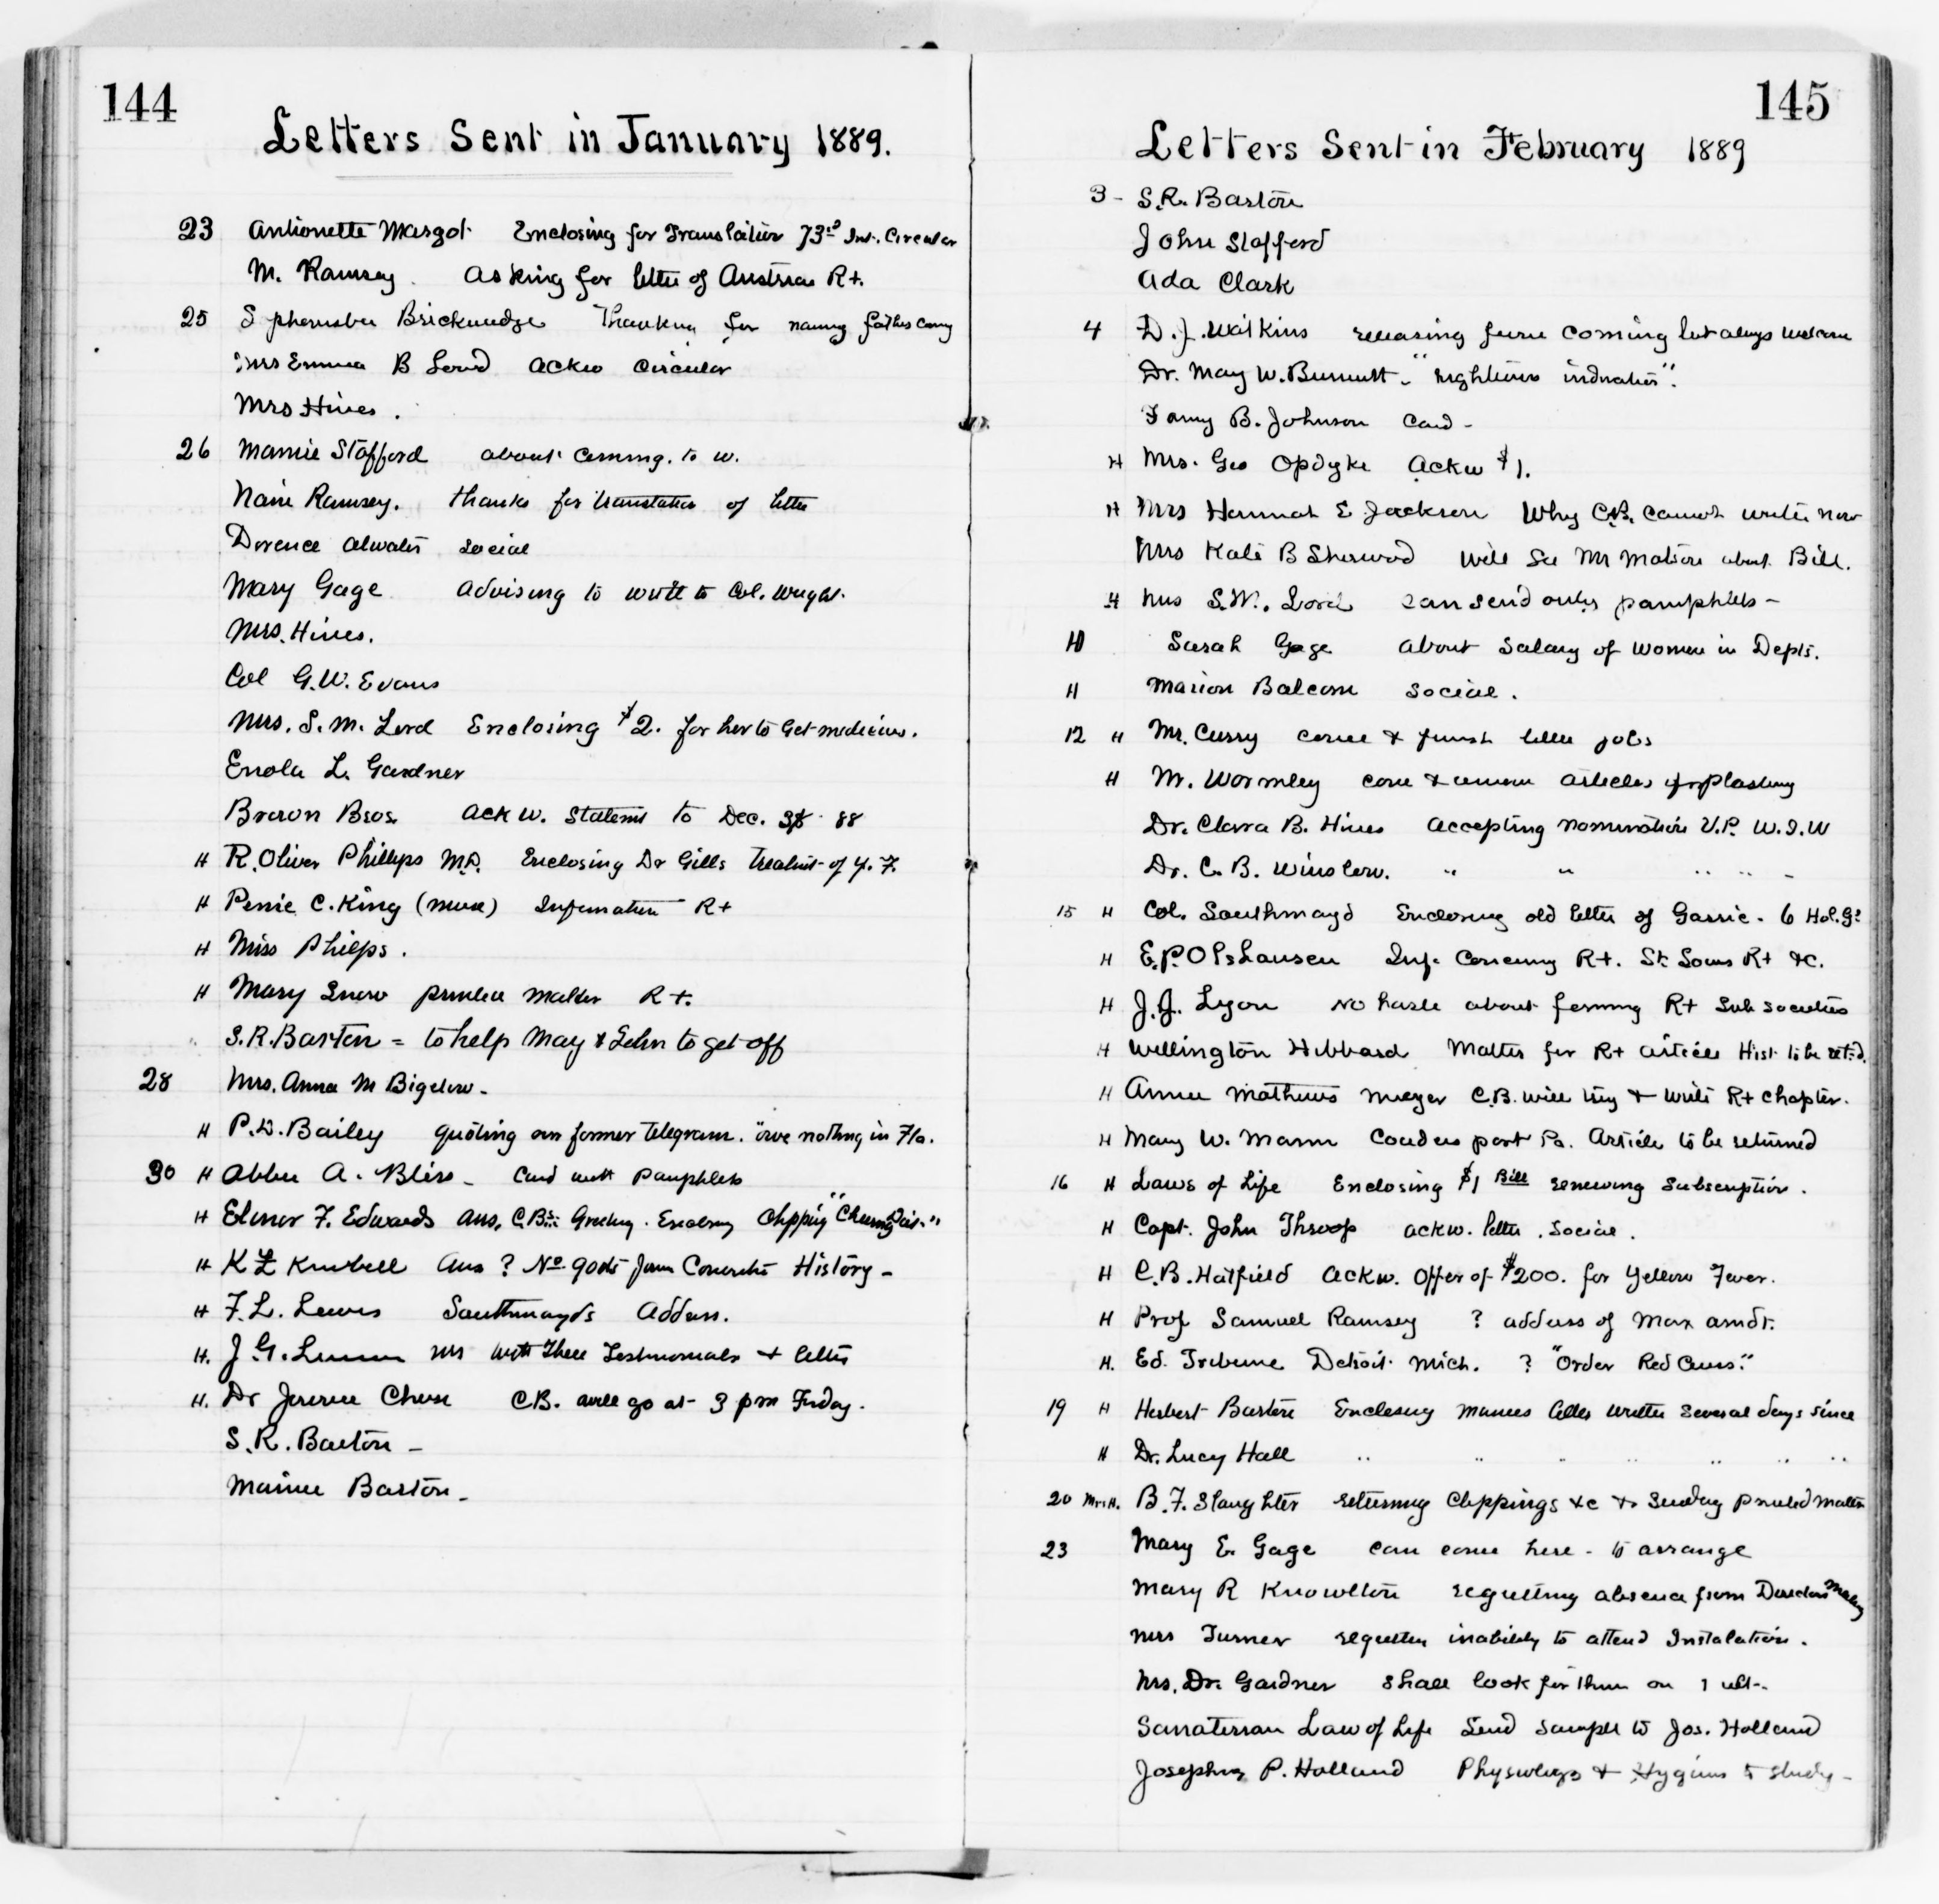 144
Letters Sent in January 1889.
23 Antionette Margot Enclosing for Translation 73rd Int. Circular
M. Ramsey. Asking for letter of Austrian R+.
25 Thanking for
Mrs Emma B Lord Ackw Circular
Mrs Hines.
26 Mamie Stafford about coming. to W.
Name Ramsey. thanks for translation of letter
Dorence Atwater social
Mary Gage advising to write to Col. Wright.
Mrs. Hines.
Col G.W. Evans
Mrs. S. M. Lord Enclosing $2. for her to Get medicine.
Enola L. Gardner
Brown Bros. Ack w. Statemt to Dec. 88
H R. Oliver Phillips M.D. Enclosing Dr Gills Treatmt of Y. F.
H C. King (nurse) Information R+
H Miss Phelps.
H Mary Snow printed matter R+.
S. R. Barton = to help May & John to get off
28 Mrs. Anna M Bigelow.
H P. D. Bailey quoting our former telegram. "owe nothing in Fla.
30 H A. Bliss - Card with Pamphlets
H Elinor F. Edwards Ans. C.B's Greeting. Enclosing Clipping "
H K L Ans ? No. goods from Concrete History -
H F. L. Lewis Southmayd's Address.
H. J. G. with three Testimonials & letter
H. Dr Jerome Chase C.B. will go at 3 pm Friday.
S. R. Barton -
Mamie Barton -
145
Letters Sent in February 1889
3 - S. R. Barton
John Stafford
Ada Clark
4 D. J. Watkins from coming but always welcome
Dr. May W. Burnett. "
Fanny B. Johnson Card -
H Mrs. Geo Opdyke Ackw $1.
H Mrs Hannah E Jackson Why C.B. cannot write now
Mrs Kate B Sherwood Will see Mr Matson about Bill.
H Mrs S. W. Lord can send only pamphlets -
10 Sarah Gage About Salary of Women in Depts.
H Marion Balcom social.
12 H Mr. Curry come & finish little jobs
H Mr. Wormley come & articles for plastering
Dr. Clara B. Hines accepting nomination V.P. W.I.W
Dr. C. B. Winslow. " " " " "
15 H Col. Southmayd Enclosing old letter of Gassie. 6 Hol. Gs
H E. P. Olshausen Inf. Concerning R+. St Louis R+ &c.
H J. J. Lyon No haste about forming R+ Sub societies
H Wellington Hibbard Matter for R+ article Hist. to be retd.
H Annie Mathews Meyer C.B. will try & write R+ chapter.
H Mary W. Mann Couders port Pa. Article to be returned
16 H Laws of Life Enclosing $1 Bill renewing subscription.
H Capt. John Throop ackw. letter. social.
H C. B. Hatfield Ackw. Offer of $200. for Yellow Fever.
H Prof Samuel Ramsey ? address of Max Arndt.
H. Ed. Tribune Detroit Mich. ? "Order Red Cross."
19 H Herbert Barton Enclosing Mamies letter written several days since
H Dr. Lucy Hall " " " " " " "
20 Mr. H. B. F. Slaughter returning Clippings &c & sending printed matter
23 Mary E. Gage can come here - to arrange
Mary R Knowlton regretting absence from Directors Meeting
Mrs Turner regretting inability to attend Instalation.
Mrs. Dr. Gardner shall look for them on 1 ult.
Sanaterran Law of Life Send sample to Jos. Holland
P. Holland Physiology & Hygiene to study -